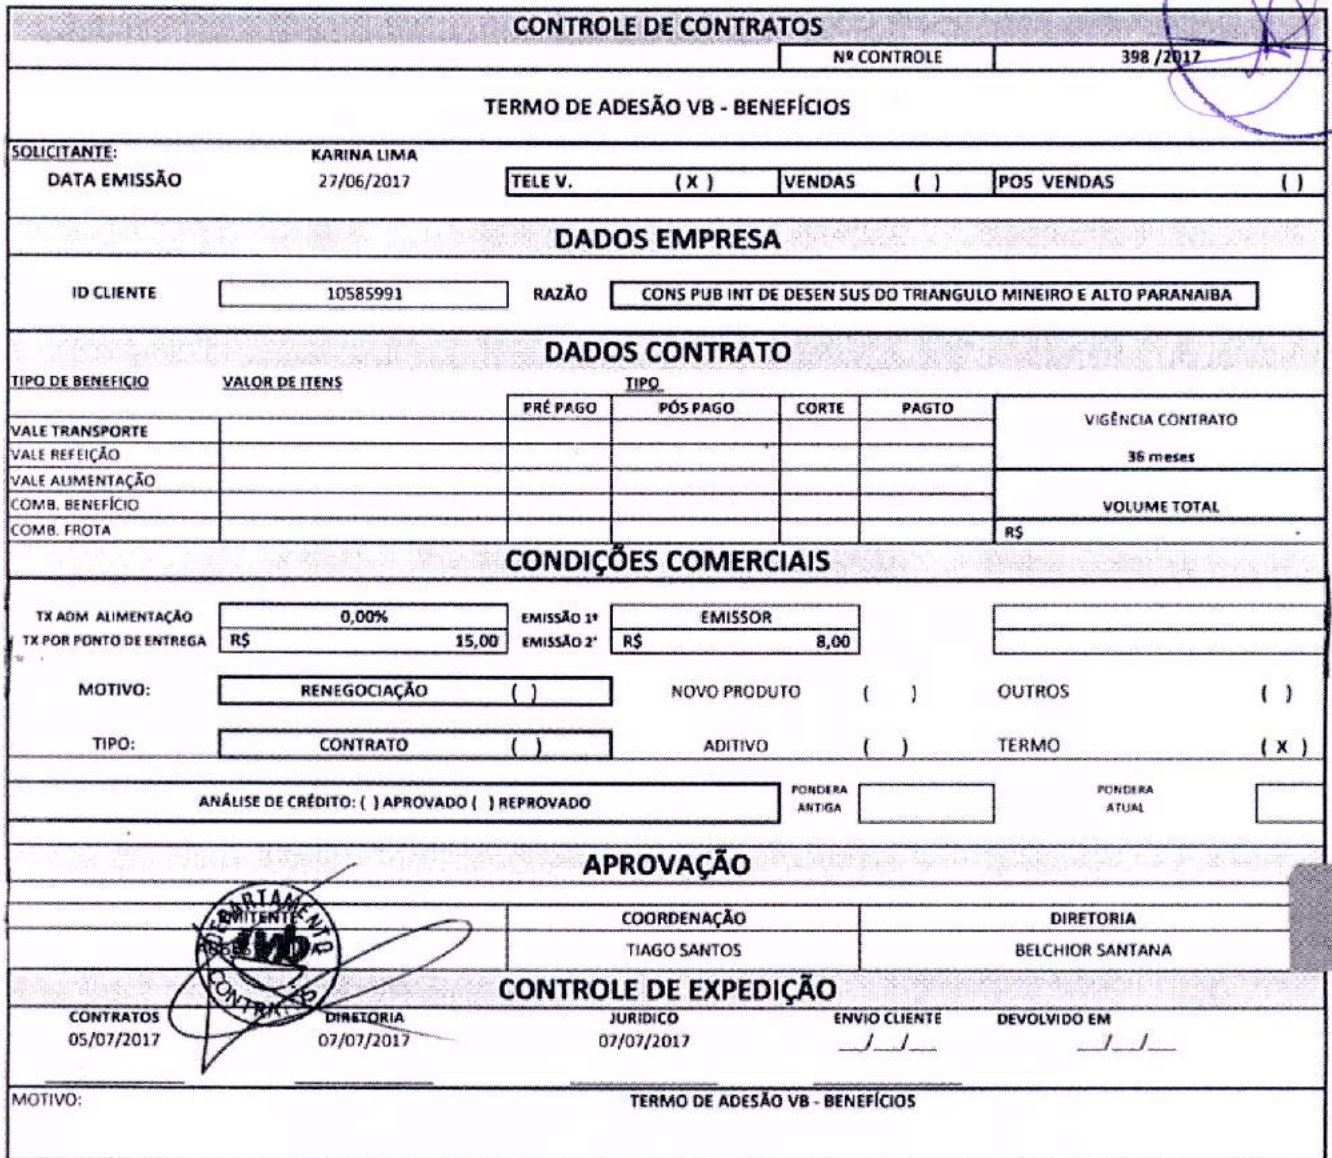 CONTROLE DE CONTRATOS
Nº CONTROLE 398 /2017
TERMO DE ADESÃO VB - BENEFÍCIOS
SOLICITANTE: KARINA LIMA
DATA EMISSÃO 27/06/2017 TELE V. ( X ) VENDAS ( ) POS VENDAS ( )
DADOS EMPRESA
ID CLIENTE 10585991 RAZÃO CONS PUB INT DE DESEN SUS DO TRIANGULO MINEIRO E ALTO PARANAIBA
DADOS CONTRATO
TIPO DE BENEFICIO VALOR DE ITENS TIPO
PRÉ PAGO PÓS PAGO CORTE PAGTO
VIGÊNCIA CONTRATO
VALE TRANSPORTE
VALE REFEIÇÃO 36 meses
VALE ALIMENTAÇÃO
COMB. BENEFÍCIO VOLUME TOTAL
COMB. FROTA R$ -
CONDIÇÕES COMERCIAIS
TX ADM ALIMENTAÇÃO 0,00% EMISSÃO 1ª EMISSOR
TX POR PONTO DE ENTREGA R$ 15,00 EMISSÃO 2ª R$ 8,00
MOTIVO: RENEGOCIAÇÃO ( ) NOVO PRODUTO ( ) OUTROS ( )
TIPO: CONTRATO ( ) ADITIVO ( ) TERMO ( X )
ANÁLISE DE CRÉDITO: ( ) APROVADO ( ) REPROVADO PONDERA ANTIGA PONDERA ATUAL
APROVAÇÃO
EMITENTE COORDENAÇÃO DIRETORIA
TIAGO SANTOS BELCHIOR SANTANA
DEPARTAMENTO vb CONTRATOS
CONTROLE DE EXPEDIÇÃO
CONTRATOS DIRETORIA JURIDICO ENVIO CLIENTE DEVOLVIDO EM
05/07/2017 07/07/2017 07/07/2017 __/__/__ __/__/__
MOTIVO: TERMO DE ADESÃO VB - BENEFÍCIOS